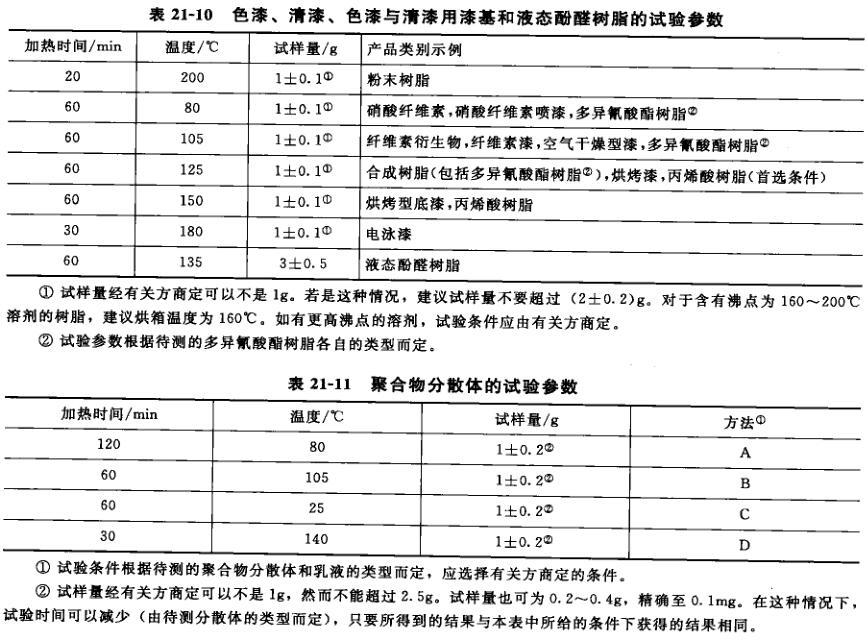 表 21-10 色漆、清漆、色漆与清漆用漆基和液态酚醛树脂的试验参数
加热时间/min 温度/℃ 试样量/g 产品类别示例
20 200 1±0.1① 粉末树脂
60 80 1±0.1① 硝酸纤维素,硝酸纤维素喷漆,多异氰酸酯树脂②
60 105 1±0.1① 纤维素衍生物,纤维素漆,空气干燥型漆,多异氰酸酯树脂②
60 125 1±0.1① 合成树脂(包括多异氰酸酯树脂②),烘烤漆,丙烯酸树脂(首选条件)
60 150 1±0.1① 烘烤型底漆,丙烯酸树脂
30 180 1±0.1① 电泳漆
60 135 3±0.5 液态酚醛树脂
① 试样量经有关方商定可以不是 1g。若是这种情况，建议试样量不要超过（2±0.2)g。对于含有沸点为 160～200℃
溶剂的树脂，建议烘箱温度为 160℃。如有更高沸点的溶剂，试验条件应由有关方商定。
② 试验参数根据待测的多异氰酸酯树脂各自的类型而定。
表 21-11 聚合物分散体的试验参数
加热时间/min 温度/℃ 试样量/g 方法①
120 80 1±0.2② A
60 105 1±0.2② B
60 25 1±0.2② C
30 140 1±0.2② D
① 试验条件根据待测的聚合物分散体和乳液的类型而定，应选择有关方商定的条件。
② 试样量经有关方商定可以不是 1g，然而不能超过 2.5g。试样量也可为 0.2～0.4g，精确至 0.1mg。在这种情况下，
试验时间可以减少（由待测分散体的类型而定），只要所得到的结果与本表中所给的条件下获得的结果相同。